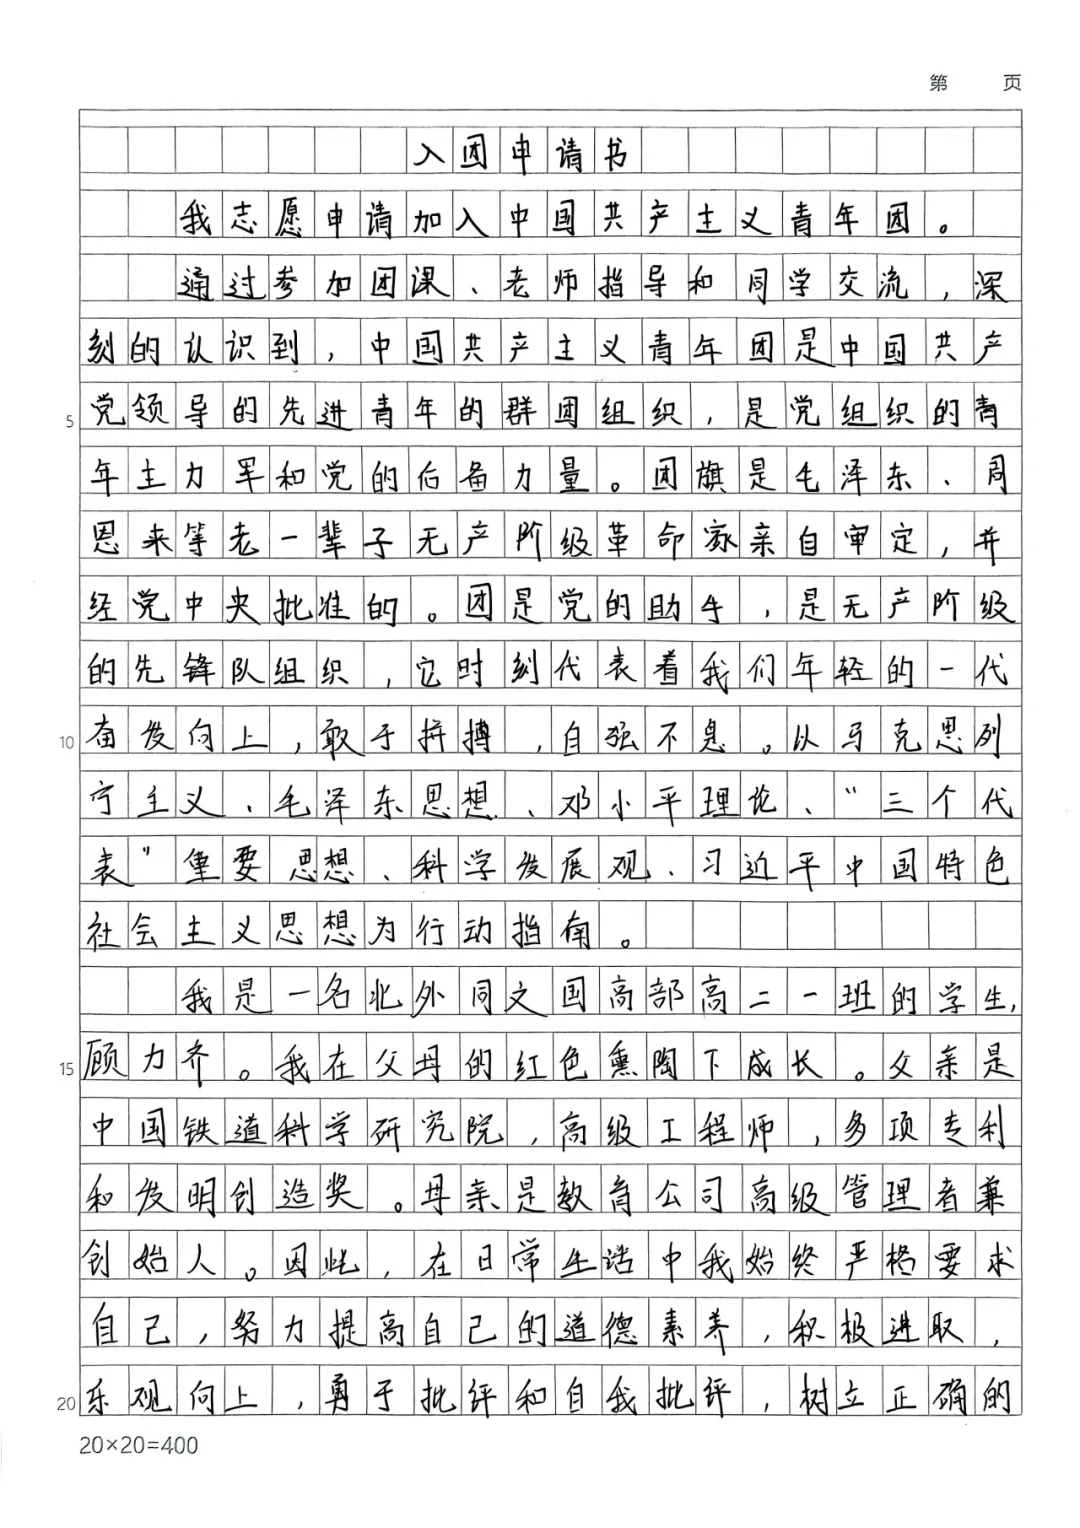 第 页
入团申请书
我志愿申请加入中国共产主义青年团。
通过参加团课、老师指导和同学交流，深
刻的认识到，中国共产主义青年团是中国共产
5 党领导的先进青年的群团组织，是党组织的青
年主力军和党的后备力量。团旗是毛泽东、周
恩来等老一辈子无产阶级革命家亲自审定，并
经党中央批准的。团是党的助手，是无产阶级
的先锋队组织，它时刻代表着我们年轻的一代
10 奋发向上，敢于拼搏，自强不息。以马克思列
宁主义、毛泽东思想、邓小平理论、“三个代
表”重要思想、科学发展观、习近平中国特色
社会主义思想为行动指南。
我是一名北外同文国高部高二一班的学生，
15 顾力齐。我在父母的红色熏陶下成长。父亲是
中国铁道科学研究院，高级工程师，多项专利
和发明创造奖。母亲是教育公司高级管理者兼
创始人。因此，在日常生活中我始终严格要求
自己，努力提高自己的道德素养，积极进取，
20 乐观向上，勇于批评和自我批评，树立正确的
20×20=400